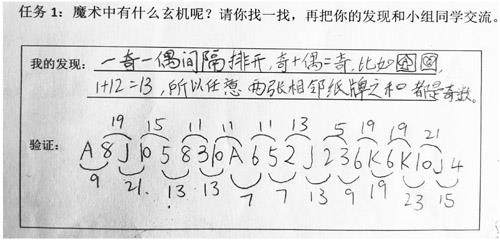 任务 1：魔术中有什么玄机呢？请你找一找，再把你的发现和小组同学交流。
我的发现：一奇一偶间隔排开，奇+偶=奇，比如
1+12=13，所以任意两张相邻纸牌之和都是奇数。
19 15 11 11 11 13 5 19 19 21
验证：A 8 J 10 5 8 3 10 A 6 5 2 J 2 3 6 K 6 K 10 J 4
9 21. 13 13 7 7 13 9 19 23 15